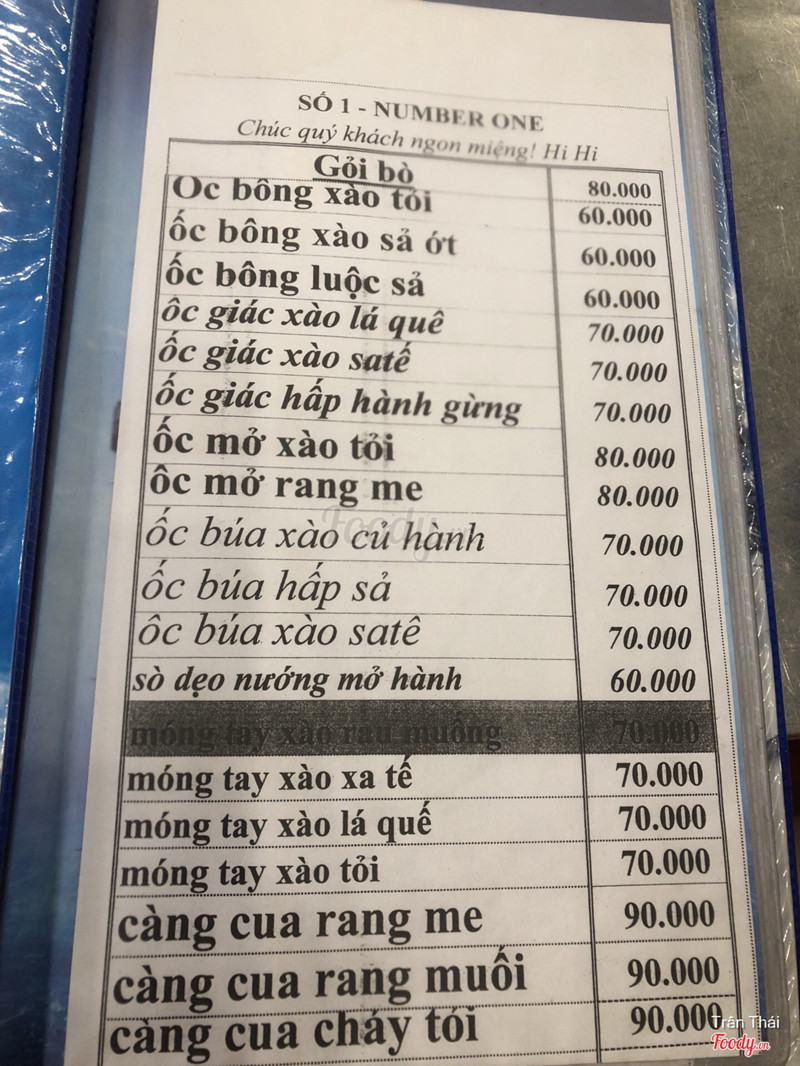 SỐ 1 - NUMBER ONE
Chúc quý khách ngon miệng! Hi Hi
Gỏi bò 80.000
Ốc bông xào tỏi 60.000
ốc bông xào sả ớt 60.000
ốc bông luộc sả 60.000
ôc giác xào lá quê 70.000
ốc giác xào satế 70.000
ốc giác hấp hành gừng 70.000
ốc mở xào tỏi 80.000
ôc mở rang me 80.000
ốc búa xào củ hành 70.000
ốc búa hấp sả 70.000
ôc búa xào satê 70.000
sò dẹo nướng mở hành 60.000
móng tay xào rau muông 70.000
móng tay xào xa tế 70.000
móng tay xào lá quế 70.000
móng tay xào tỏi 70.000
càng cua rang me 90.000
càng cua rang muối 90.000
càng cua cháy tỏi 90.000
Trân Thái
Foody.vn